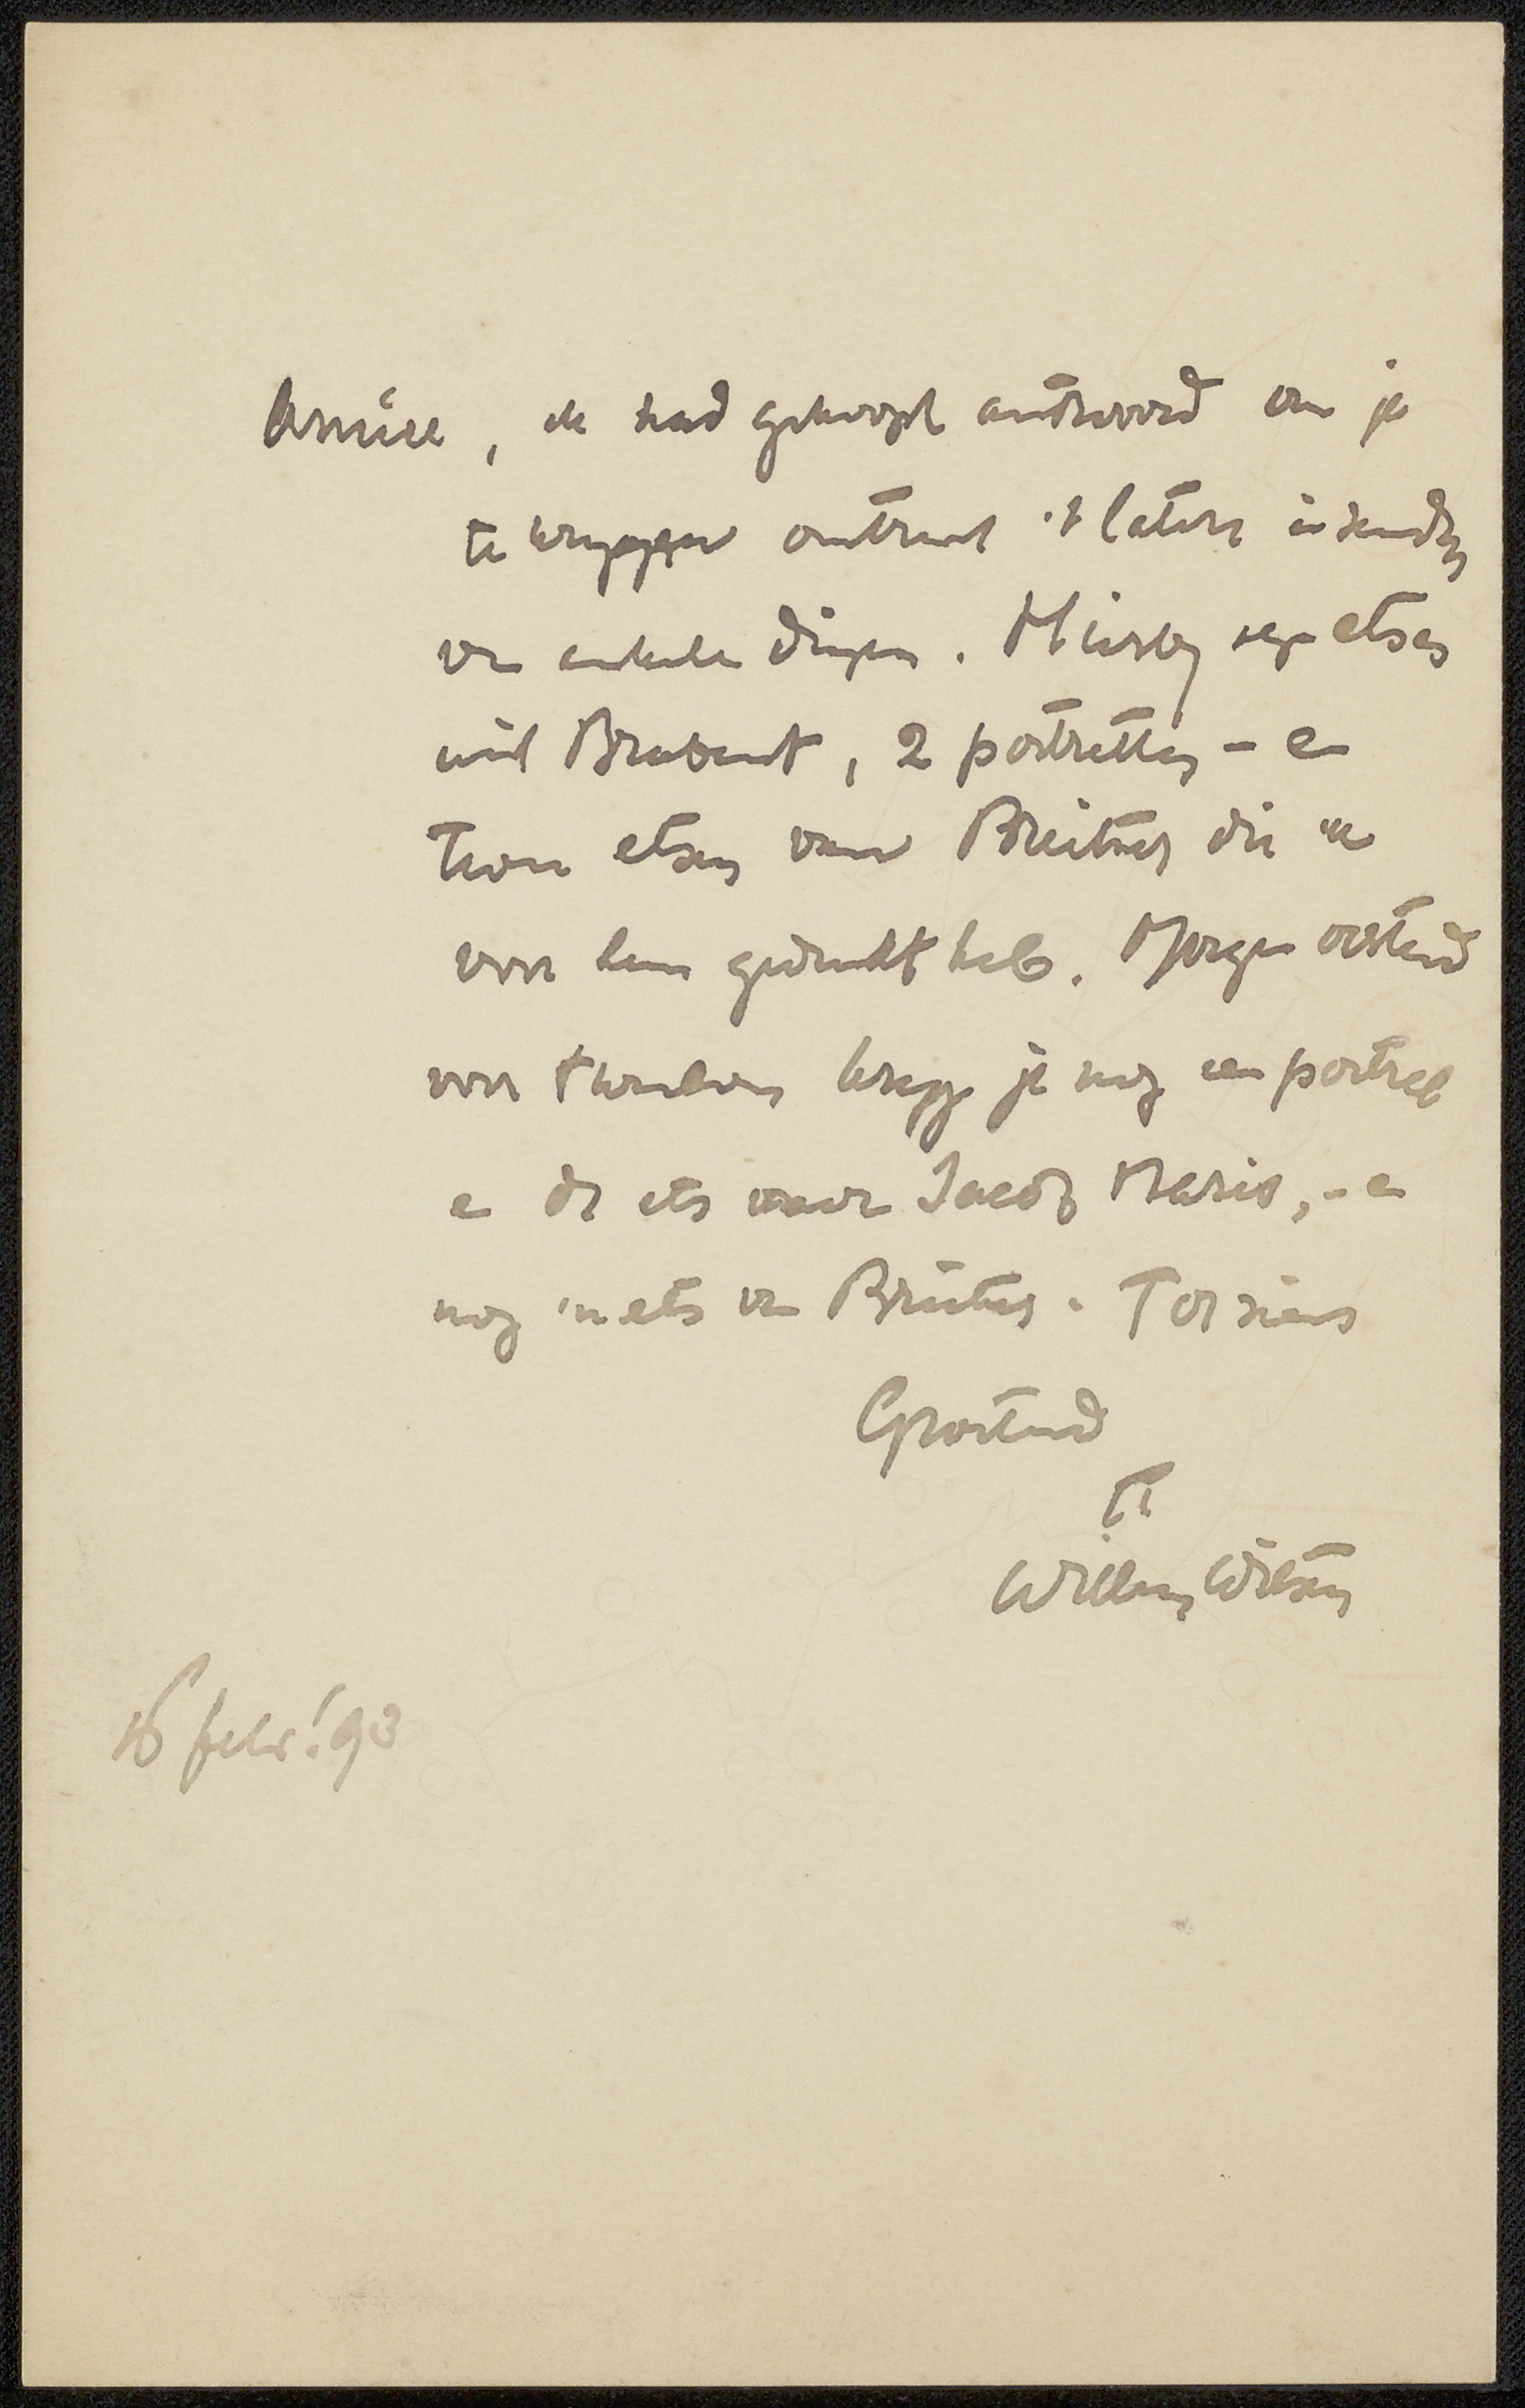 Amice, ik had gehoopt antwoord van je
te krijgen omtrent 't later inzenden
van enkele dingen. Hierbij zes etsen
uit Brabant, 2 portretten - en
twee etsen van Breitner die ik
voor hem gedrukt heb. Morgen ochtend
voor twaalven krijg je nog een portret
en de ets naar Jacob Maris, - en
nog 'n ets van Breitner. Tot ziens
Groetend
tt
Willem Witsen
16 febr. '93